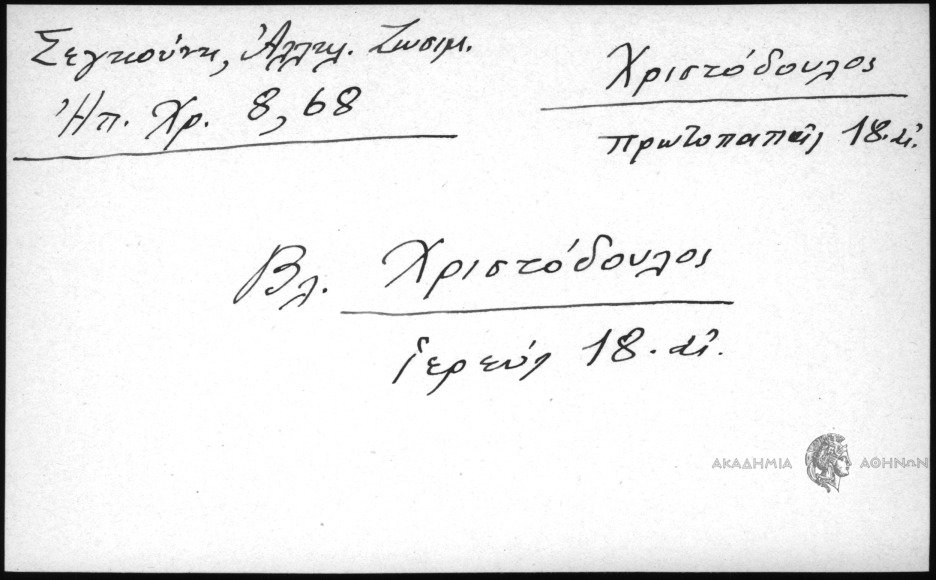 Σεγκούνη, Ἀλλτ. Ζωσιμ.
Ἠπ. Χρ. 8, 68
Χριστόδουλος
πρωτοπαπᾶς 18. αἰ.
Βλ. Χριστόδουλος
ἱερεύς 18. αἰ.
ΑΚΑΔΗΜΙΑ ΑΘΗΝΩΝ